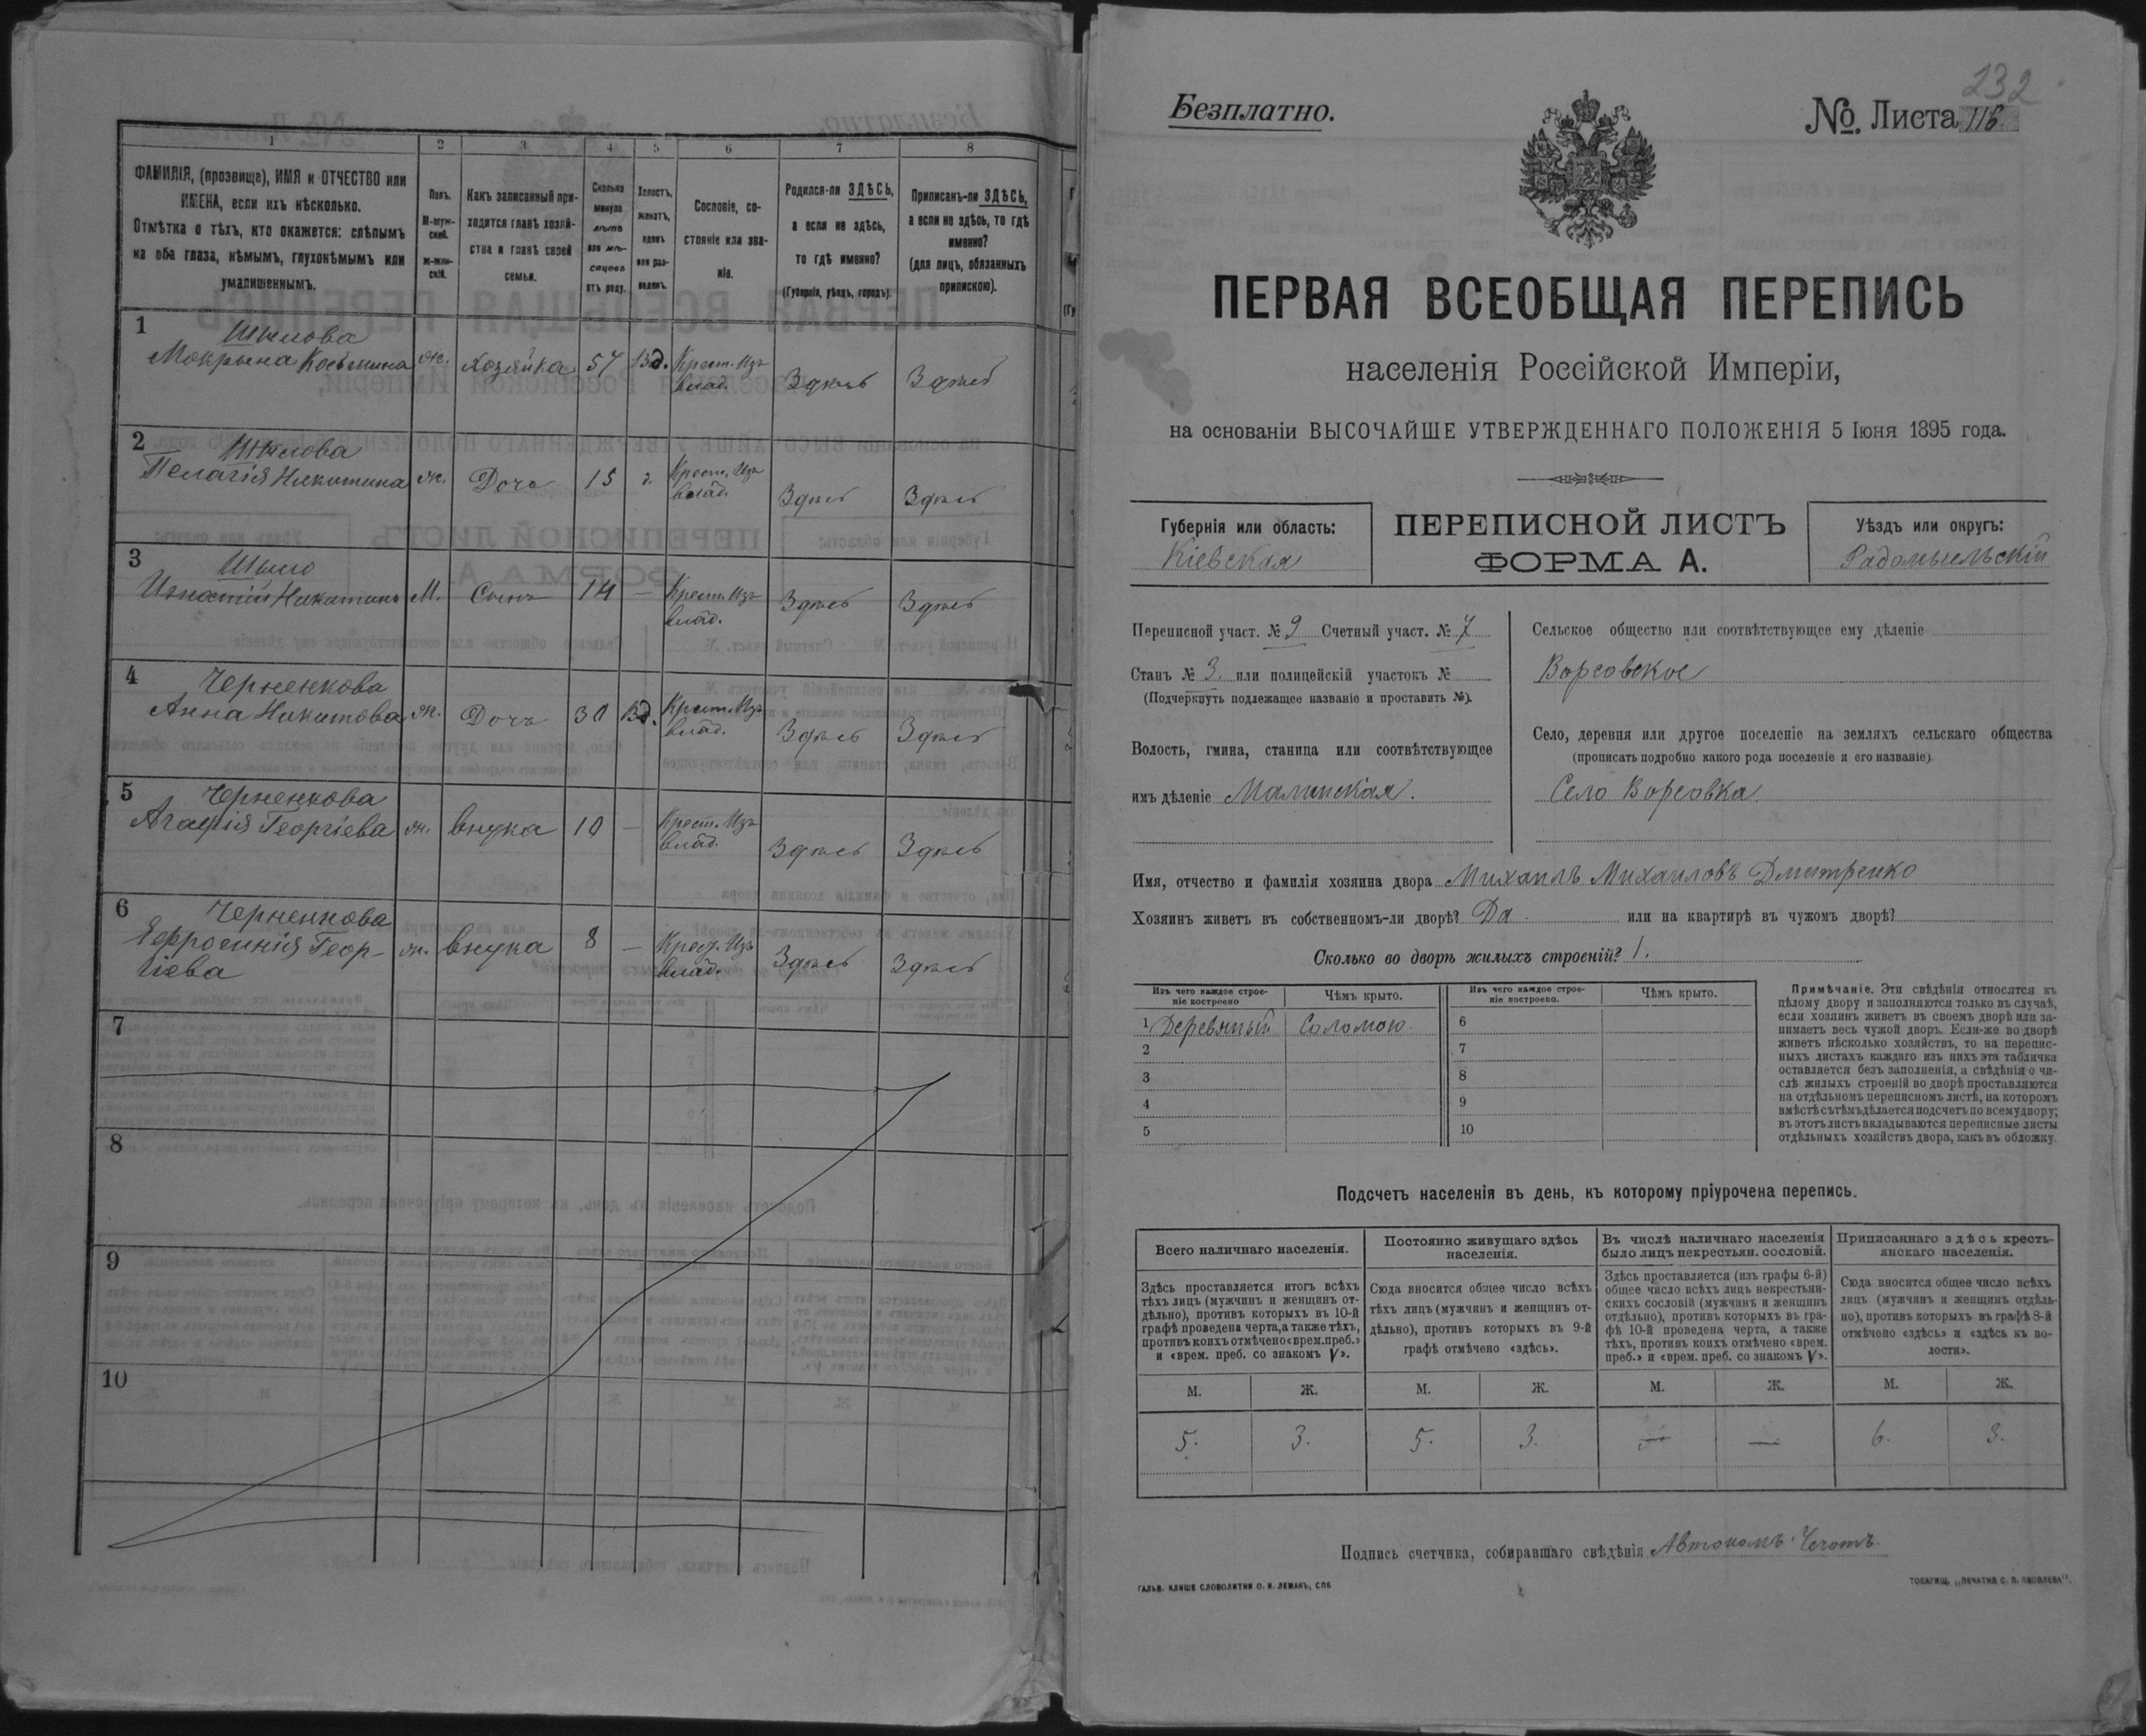 1
2
3
4
5
6
7
8
ФАМИЛІЯ, (прозвище), ИМЯ и ОТЧЕСТВО или
ИМЕНА, если ихъ нѣсколько.
Отмѣтка о тѣхъ, кто окажется: слѣпымъ
на оба глаза, нѣмымъ, глухонѣмымъ или
умалишеннымъ.
Полъ.
М-муж-
ской.
ж-жен-
скій.
Какъ записанный при-
ходится главѣ хозяй-
ства и главѣ своей
семьи.
Сколько
минуло
лѣтъ
или мѣ-
сяцевъ
отъ роду.
Холостъ,
женатъ,
вдовъ
или раз-
веденъ.
Сословіе, со-
стояніе или зва-
ніе.
Родился-ли ЗДѢСЬ,
а если не здѣсь,
то гдѣ именно?
(Губернія, уѣздъ, городъ).
Приписанъ-ли ЗДѢСЬ,
а если не здѣсь, то гдѣ
именно?
(для лицъ, обязанныхъ
припискою).
1
Шилова
Мокрына Косьмина ж. Хозяйка 57 Вд. Крест. Изъ влад. Здѣсь Здѣсь
2
Шилова
Пелагія Никитина ж. Дочь 15 д. Крест. Изъ влад. Здѣсь Здѣсь
3
Шило
Игнатій Никитинъ М. Сынъ 14 — Крест. Изъ влад. Здѣсь Здѣсь
4
Черненкова
Анна Никитова ж. Дочь 30 Вд. Крест. Изъ влад. Здѣсь Здѣсь
5
Черненкова
Агафія Георгіева ж. внука 10 — Крест. Изъ влад. Здѣсь Здѣсь
6
Черненкова
Ефросинія Геор- ж. внука 8 — Крест. Изъ влад. Здѣсь Здѣсь
гіева
7
8
9
10
232
Безплатно.
№. Листа 116
ПЕРВАЯ ВСЕОБЩАЯ ПЕРЕПИСЬ
населенія Россійской Имперіи,
на основаніи ВЫСОЧАЙШЕ УТВЕРЖДЕННАГО ПОЛОЖЕНІЯ 5 Іюня 1895 года.
Губернія или область:
Кіевская
ПЕРЕПИСНОЙ ЛИСТЪ
ФОРМА А.
Уѣздъ или округъ:
Радомысльскій
Переписной участ. № 9 Счетный участ. № 7
Станъ № 3. или полицейскій участокъ №
(Подчеркнуть подлежащее названіе и проставить №).
Волость, гмина, станица или соотвѣтствующее
имъ дѣленіе Малинская.
Сельское общество или соотвѣтствующее ему дѣленіе
Ворсовское
Село, деревня или другое поселеніе на земляхъ сельскаго общества
(прописать подробно какого рода поселеніе и его названіе).
Село Ворсовка.
Имя, отчество и фамилія хозяина двора Михаилъ Михаиловъ Дмитренко
Хозяинъ живетъ въ собственномъ-ли дворѣ? Да или на квартирѣ въ чужомъ дворѣ?
Сколько во дворѣ жилыхъ строеній? 1.
Изъ чего каждое строе-
ніе построено
Чѣмъ крыто.
Изъ чего каждое строе-
ніе построено.
Чѣмъ крыто.
1 Деревяный Соломою
2
3
4
5
6
7
8
9
10
Примѣчаніе. Эти свѣдѣнія относятся къ
цѣлому двору и заполняются только въ случаѣ,
если хозяинъ живетъ въ своемъ дворѣ или за-
нимаетъ весь чужой дворъ. Если-же во дворѣ
живетъ нѣсколько хозяйствъ, то на перепис-
ныхъ листахъ каждаго изъ нихъ эта табличка
оставляется безъ заполненія, а свѣдѣнія о чи-
слѣ жилыхъ строеній во дворѣ проставляются
на отдѣльномъ переписномъ листѣ, на которомъ
вмѣстѣ съ тѣмъ дѣлается подсчетъ по всему двору;
въ этотъ листъ вкладываются переписные листы
отдѣльныхъ хозяйствъ двора, какъ въ обложку.
Подсчетъ населенія въ день, къ которому пріурочена перепись.
Всего наличнаго населенія.
Постоянно живущаго здѣсь
населенія.
Въ числѣ наличнаго населенія
было лицъ некрестьян. сословій.
Приписаннаго здѣсь кресть-
янскаго населенія.
Здѣсь проставляется итогъ всѣхъ
тѣхъ лицъ (мужчинъ и женщинъ от-
дѣльно), противъ которыхъ въ 10-й
графѣ проведена черта, а также тѣхъ,
противъ коихъ отмѣчено «врем. преб.»
и «врем. преб. со знакомъ V».
Сюда вносится общее число всѣхъ
тѣхъ лицъ (мужчинъ и женщинъ от-
дѣльно), противъ которыхъ въ 9-й
графѣ отмѣчено «здѣсь».
Здѣсь проставляется (изъ графы 6-й)
общее число всѣхъ лицъ некрестьян-
скихъ сословій (мужчинъ и женщинъ
отдѣльно), противъ которыхъ въ гра-
фѣ 10-й проведена черта, а также
тѣхъ, противъ коихъ отмѣчено «врем.
преб.» и «врем. преб. со знакомъ V».
Сюда вносится общее число всѣхъ
лицъ (мужчинъ и женщинъ отдѣль-
но), противъ которыхъ въ графѣ 8-й
отмѣчено «здѣсь» и «здѣсь къ во-
лости».
М. Ж. М. Ж. М. Ж. М. Ж.
5. 3. 5. 3. — — 6. 3.
Подпись счетчика, собиравшаго свѣдѣнія Автономъ
ГАЛЬВ. КЛИШЕ СЛОВОЛИТНИ О. И. ЛЕМАНЪ, СПБ
ТОВАРИЩ. „ПЕЧАТНЯ С. П. ЯКОВЛЕВА“.